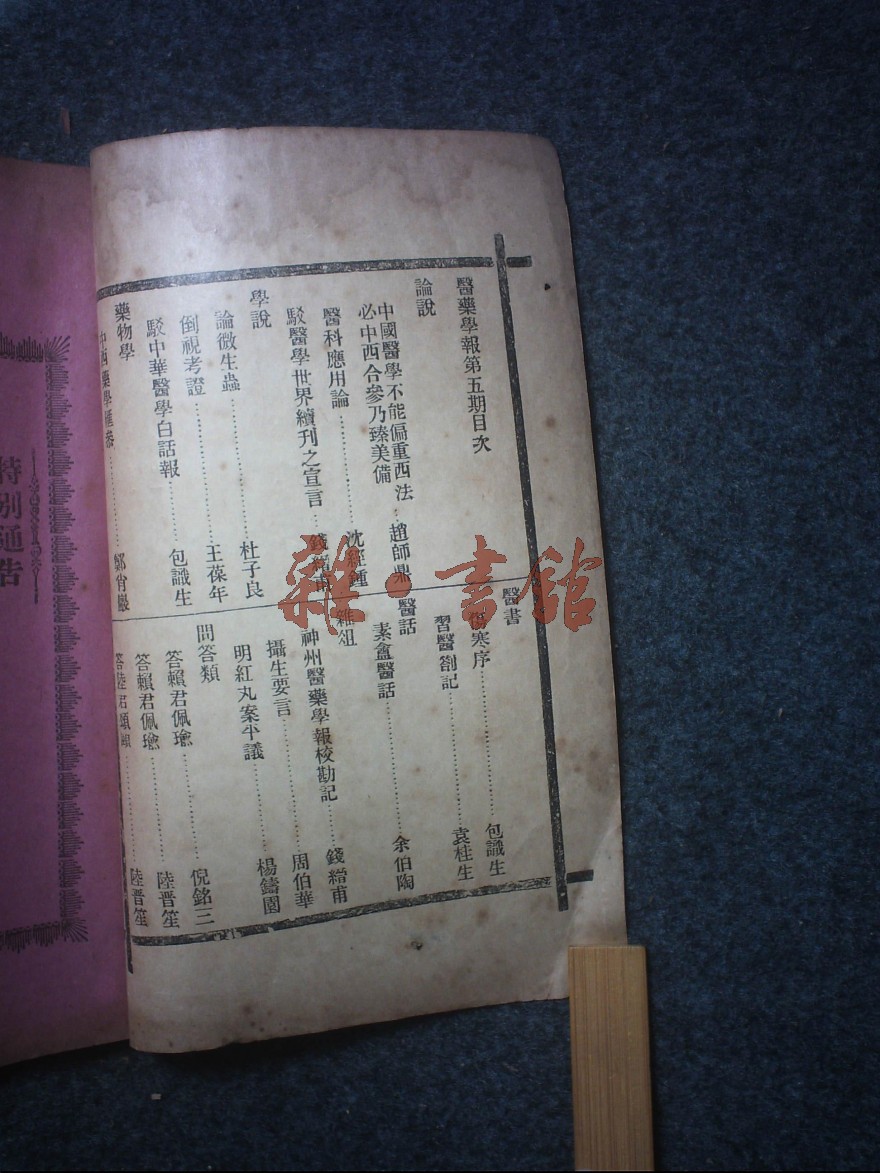 醫藥學報第五期目次
論說
中國醫學不能偏重西法
必中西合參乃臻美備……趙師鼎
醫科應用論……沈經鍾
駁醫學世界續刊之宣言……錢縉甫
學說
論微生蟲……杜子良
倒視考證……王葆年
駁中華醫學白話報……包識生
藥物學
中西藥學匯參……鄭肖巖
醫書
傷寒序……包識生
習醫劄記……袁桂生
醫話
素盦醫話……余伯陶
雜俎
神州醫藥學報校勘記……錢縉甫
攝生要言……周伯華
明紅丸案平議……楊鑄園
問答類
答賴君佩瑜……倪銘三
答賴君佩瑜……陸晋笙
答陸君頌……陸晋笙
特別通告
雜·書館